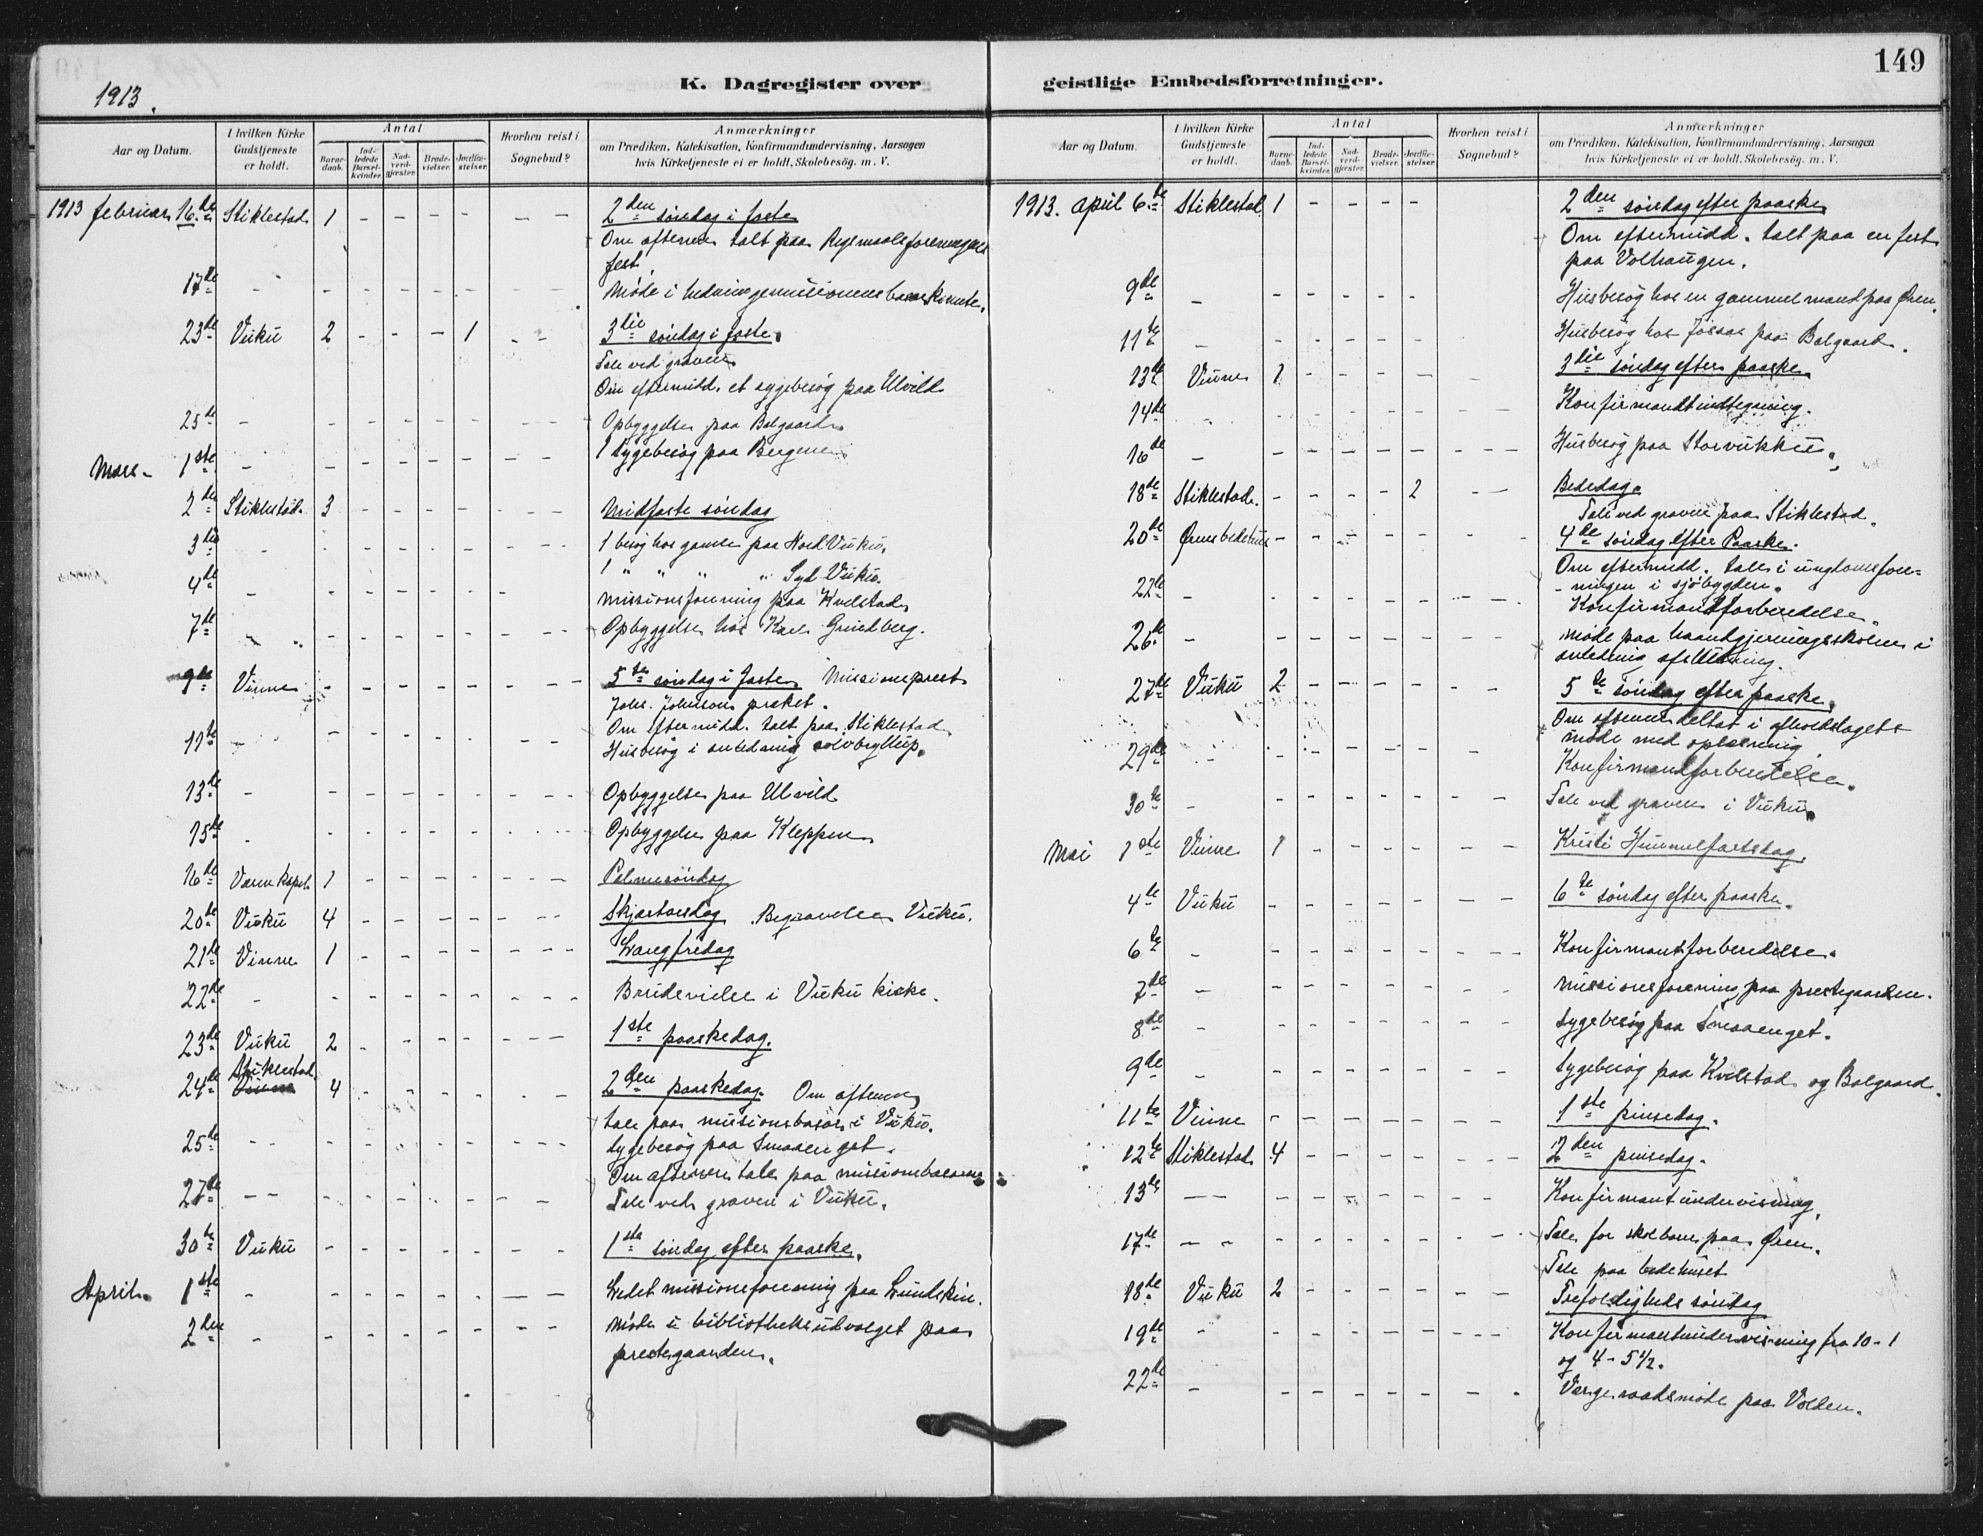 149
K. Dagregister over geistlige Embedsforretninger.
1913.
Aar og Datum.
I hvilken Kirke Gudstjeneste er holdt.
Antal
Barnedaab.
Indledede Barselkvinder.
Nadverdgjæster.
Brudevielser.
Jordfæstelser.
Hvorhen reist i Sognebud?
Anmærkninger
om Prædiken, Katekisation, Konfirmandundervisning, Aarsagen
hvis Kirketjeneste ei er holdt, Skolebesög. m. V.
1913 februar 16.de Stiklestad 1 - - - - - - 2den søndag i faste
Om aftenen talt paa
fest.
17de - - - - - - - Møde i
23de Vuku 2 - - - 1 - - 3die søndag i faste.
Tale ved graven
Om eftermidd. et sygebesøg paa Ulvild
25de - - - - - - - Opbyggelse paa Balgaard
Mars - 1ste - - - - - - - - 1 Sygebesøg paa Bergene
2de Stiklestad. 3 - - - - - - Midfaste søndag
3die - - - - - - - 1 besøg hos gamle paa Nord Vuku.
1 " " " " Syd Vuku.
4de - - - - - - - Missionsforening paa Kvelstad
7de - - - - - - - Opbyggelse hos Karl Grundberg.
9de Vinne - - - - - - - 5te søndag i faste Missionsprest
Johs. Johnson præket.
Om eftermidd. talt paa Stiklestad
11te - - - - - - - Husbesøg i anledning sølvbryllup.
13de - - - - - - - Opbyggelse paa Ulvild
15de - - - - - - - Opbyggelse paa Kleppen
16de Værn kapel 1 - - - - - - Palmesøndag
20de Vuku 4 - - - - - - Skjærtorsdag Begravelse Vuku.
21de Vinne 1 - - - - - - Langfredag
22de - - - - - - - Brudevielse i Vuku kirke.
23de Vuku 2 - - - - - - 1ste paaskedag.
Stiklestad
24de Vinne 4 - - - - - - 2den paaskedag. Om aftenen
tale paa missionsbasar i Vuku.
25de - - - - - - - Sygebesøg paa Smaaenget.
Om aftenen tale paa missionsbasaren
27de - - - - - - - Tale ved graven i Vuku.
30te Vuku - - - - - - - 1ste søndag efter paaske.
April. 1ste - - - - - - - Ledet missionsforening paa Lundskin.
2den - - - - - - - Møde i bibliotheksudvalget paa
prestegaarden.
Aar og Datum.
I hvilken Kirke Gudstjeneste er holdt.
Antal
Barnedaab.
Indledede Barselkvinder.
Nadverdgjæster.
Brudevielser.
Jordfæstelser.
Hvorhen reist i Sognebud?
Anmærkninger
om Prædiken, Katekisation, Konfirmandundervisning, Aarsagen
hvis Kirketjeneste ei er holdt, Skolebesög. m. V.
1913. april 6.te Stiklestad 1 - - - - 2den søndag efter paaske
Om eftermidd. talt paa en fest
paa Volhaugen.
9de - - - - - - Husbesøg hos en gammel mand paa Øren.
11te - - - - - - Husbesøg hos paa Balgaard.
13de Vinne 1 - - - - - - 3die søndag efter paaske
14de - - - - - - - Konfirmantindtegning.
16de - - - - - - - Husbesøg paa Storvukku.
18de Stiklestad. - - - - 2 - - Bededag.
Tale ved graven paa Stiklestad.
20de Ørens bedehus - - - - - - - 4de søndag efter Paaske.
Om eftermidd. tale i ungdomsfore-
ningen i sjøbygden.
22de - - - - - - - Konfirmandforberedelse.
26de - - - - - - - Møde paa haandgjerningsskolen i
anledning afslutning.
27de Vuku 2 - - - - - - 5te søndag efter paaske.
Om aftenen deltat i afholdslagets
møde med oplæsning
29de - - - - - - - Konfirmandforberedelse.
30te - - - - - - - Tale ved graven i Vuku.
Mai 1ste Vinne 1 - - - - - - Kristi Himmelfartsdag.
4de Vuku - - - - - - - 6te søndag efter paaske.
6te - - - - - - - Konfirmantforberedelse.
7de - - - - - - - Missionsforening paa prestegaarden.
8de - - - - - - - Sygebesøg paa Smaaenget.
9de - - - - - - - Sygebesøg paa Kvelstad og Balgaard.
11te Vinne - - - - - - - 1ste pinsedag.
12te Stiklestad 4 - - - - - - 2den pinsedag.
13de - - - - - - - Konfirmantundervisning.
17de - - - - - - - Tale for skolbarn paa Øren.
Tale paa bedehuset
18de Vuku 2 - - - - - - Trefoldigheds søndag
19de - - - - - - - Konfirmantundervisning fra 10-1
og 4-5½.
22de - - - - - - - Vergeraadsmøde paa Volden.